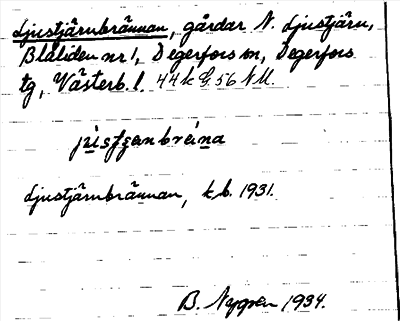 Ljustjärnbrännan, gårdar N. Ljustjärn,
Blåliden nr 1, Degerfors sn, Degerfors
tg, Västerb. l. 44 k G. 56 NU.
Ljustjärnbrännan, k.b. 1931.
B. Nygren 1934.